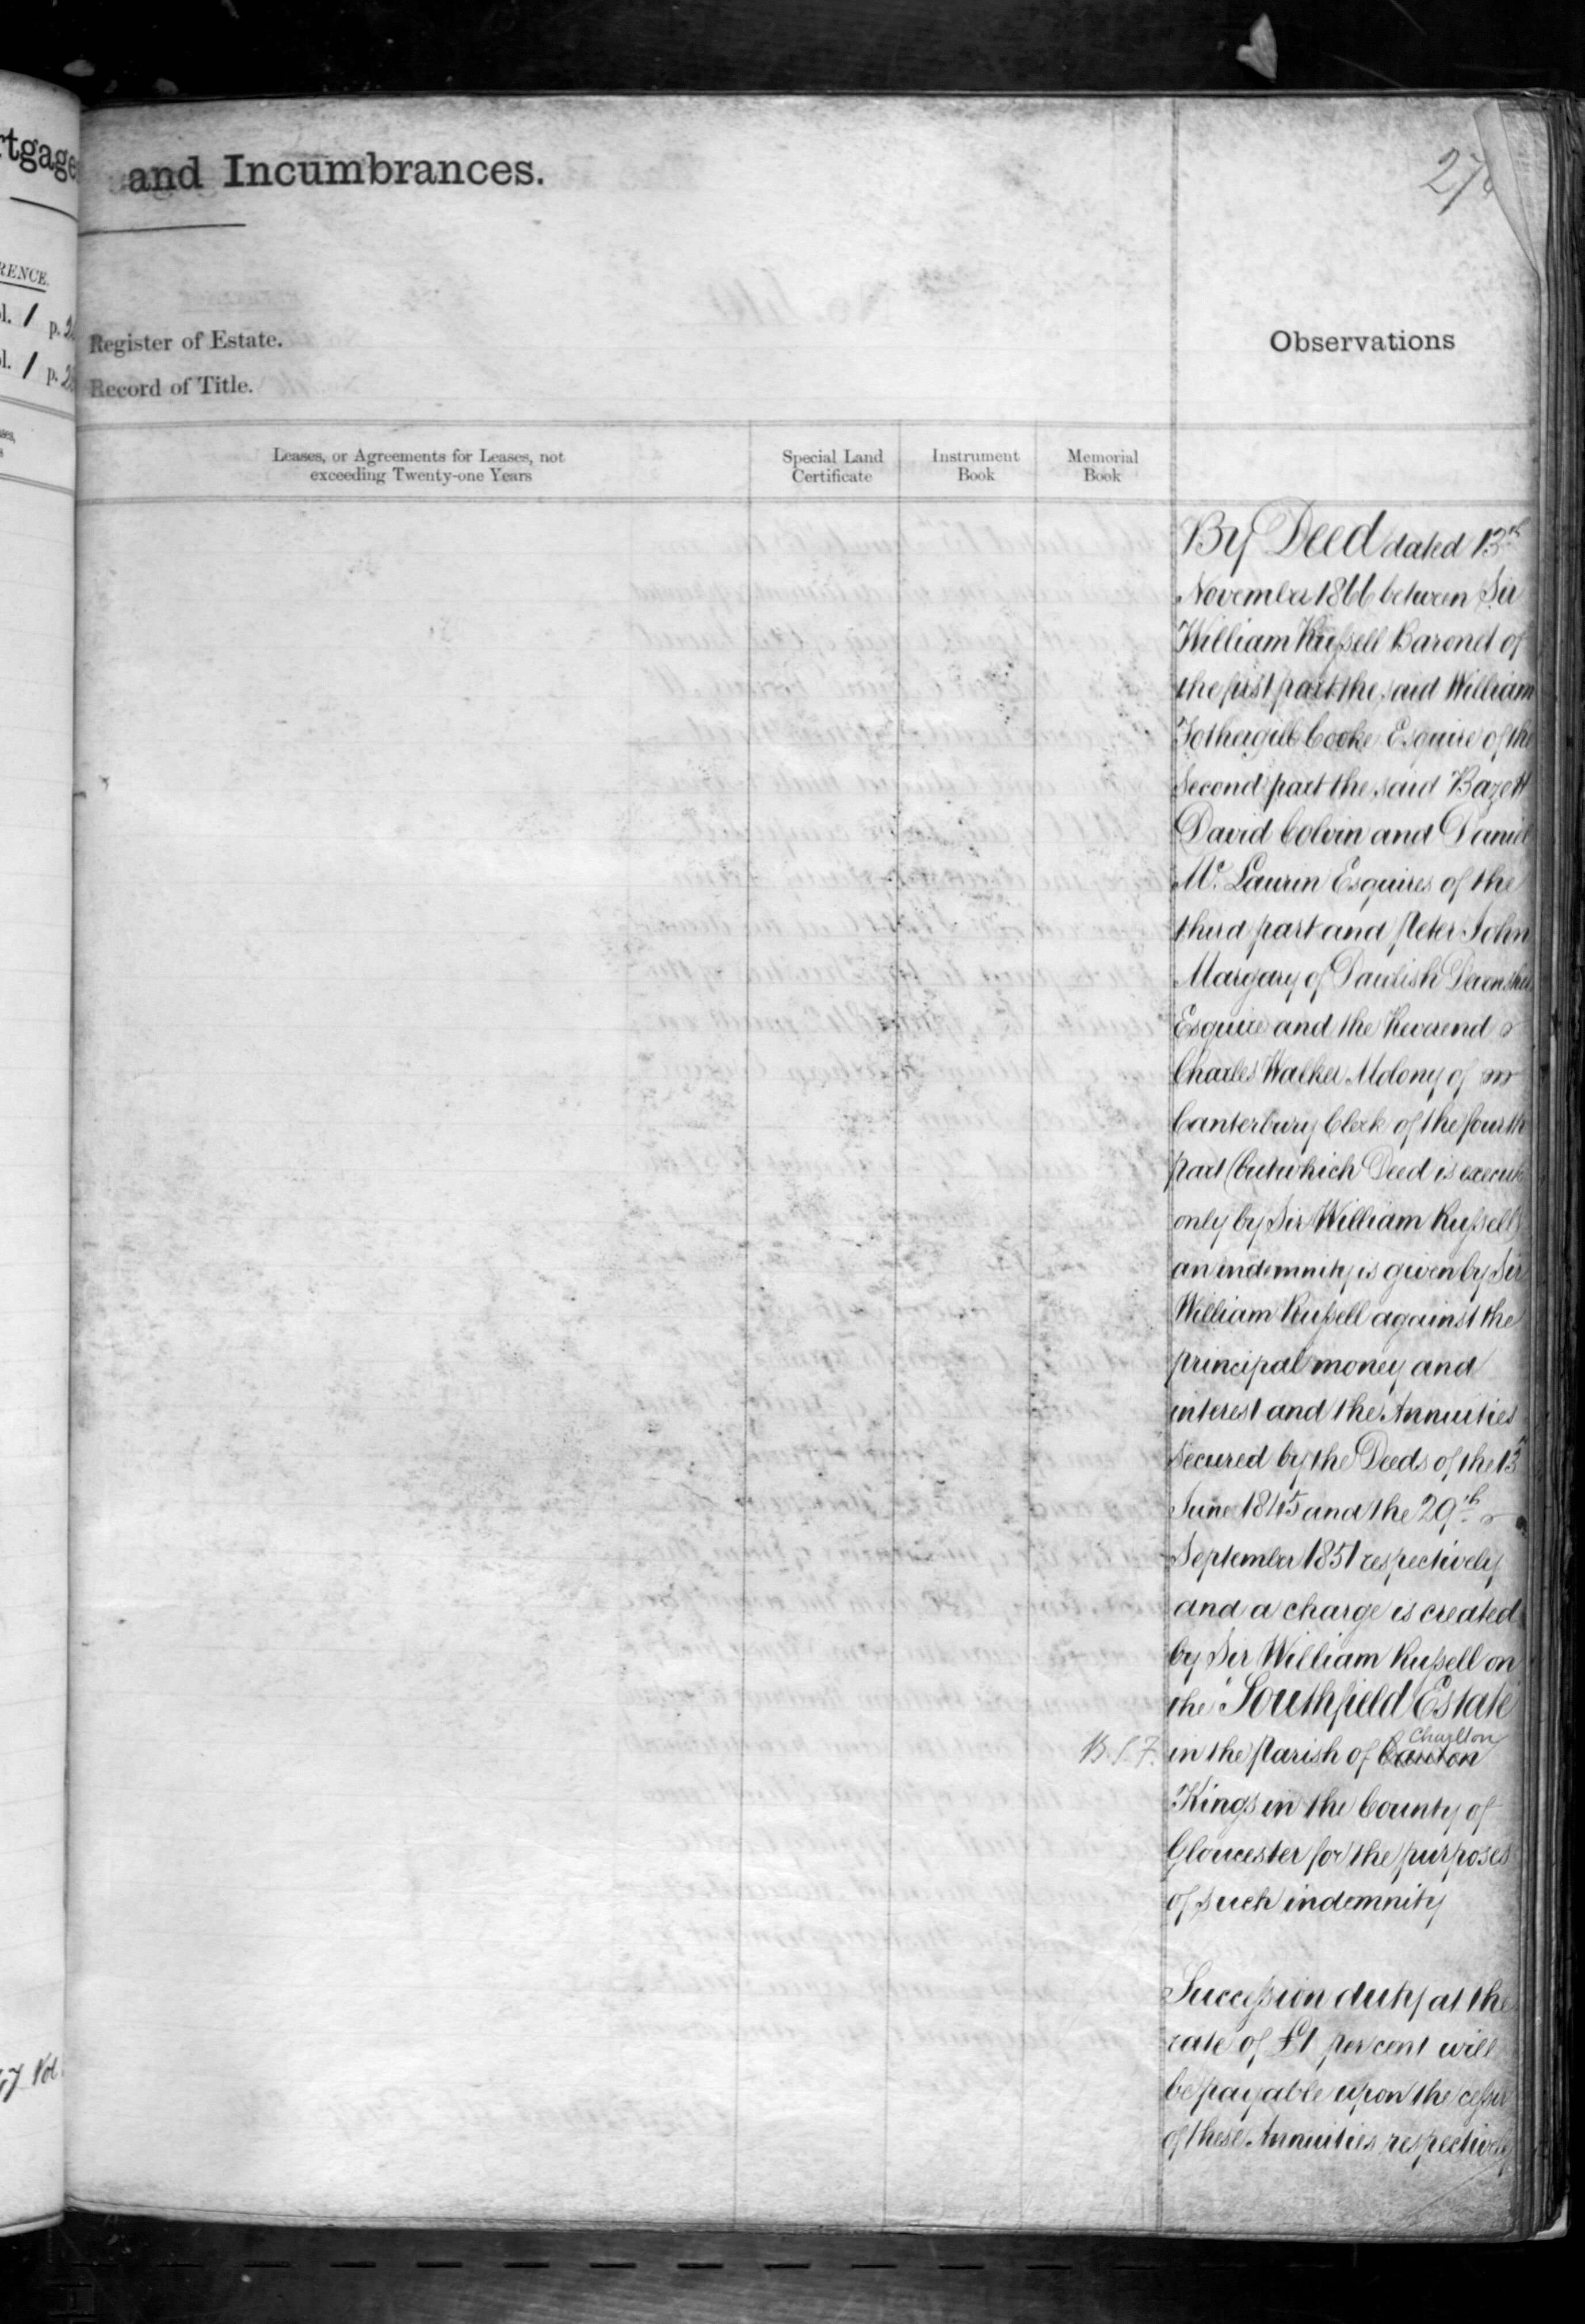 and Incumbrances.
RENCE.
Register of Estate.
Record of Title.
Observations
Leases, or Agreements for Leases, not
exceeding Twenty-one Years
Special Land
Certificate
Instrument
Book
Memorial
Book
By Deed dated 13th
November 1866 between Sir
William Russell Baronet of
the first part the said William
Fothergill Cooke Esquire of the
second part the said Bazett
David Colvin and Daniel
Mc. Laurin Esquires of the
third part and Peter John
Margary of Dawlish Devonshire
Esquire and the Reverend
Charles Walker Molony of
Canterbury Clerk of the fourth
part (but which Deed is execut
only by Sir William Russell)
an indemnity is given by Sir
William Russell against the
principal money and
interest and the Annuities
secured by the Deeds of the 13
June 1845 and the 29th
September 1851 respectively
and a charge is created
by Sir William Russell on
the Southfield Estate
Charlton
B.S.F. in the Parish of
Kings in the County of
Gloucester for the purposes
of such indemnity
Succession duty at the
rate of £1 per cent will
be payable upon the cesser
of these Annuities respectively